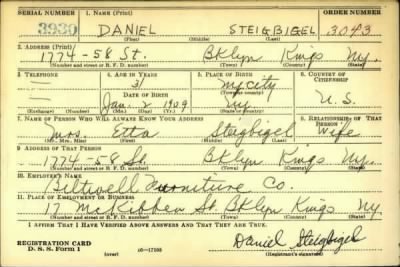 SERIAL NUMBER 1. NAME (Print) ORDER NUMBER
3930 DANIEL STEIGBIGEL 3043
(First) (Middle) (Last)
2. ADDRESS (Print)
1774-58 St. Bklyn Kings Ny.
(Number and street or R. F. D. number) (Town) (County) (State)
3. TELEPHONE 4. AGE IN YEARS 5. PLACE OF BIRTH 6. COUNTRY OF CITIZENSHIP
— 31 nycity
DATE OF BIRTH (Town or county)
— Jan. 2 1909 Ny U. S.
(Exchange) (Number) (Mo.) (Day) (Yr.) (State or country)
7. NAME OF PERSON WHO WILL ALWAYS KNOW YOUR ADDRESS 8. RELATIONSHIP OF THAT PERSON
Mrs. Etta Steigbigel Wife
(Mr., Mrs., Miss) (First) (Middle) (Last)
9. ADDRESS OF THAT PERSON
1774-58 St. Bklyn Kings Ny.
(Number and street or R. F. D. number) (Town) (County) (State)
10. EMPLOYER'S NAME
Biltwell Furniture Co.
11. PLACE OF EMPLOYMENT OR BUSINESS
17 McKibben St. Bklyn Kings Ny
(Number and street or R. F. D. number) (Town) (County) (State)
I AFFIRM THAT I HAVE VERIFIED ABOVE ANSWERS AND THAT THEY ARE TRUE.
REGISTRATION CARD
D. S. S. Form 1 16-17105 (over) Daniel Steigbigel
(Registrant's signature)